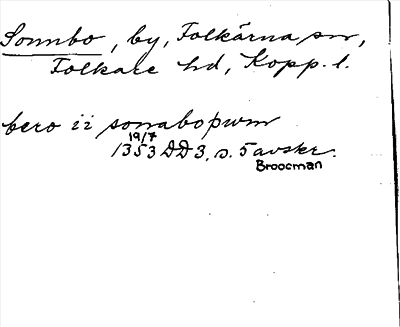 Sonnbo, by, Folkärna sn,
Folkare hd, Kopp. l.
bero ii sonabopwm
19/7
1353 DD 3, s. 5 avskr.
Broocman